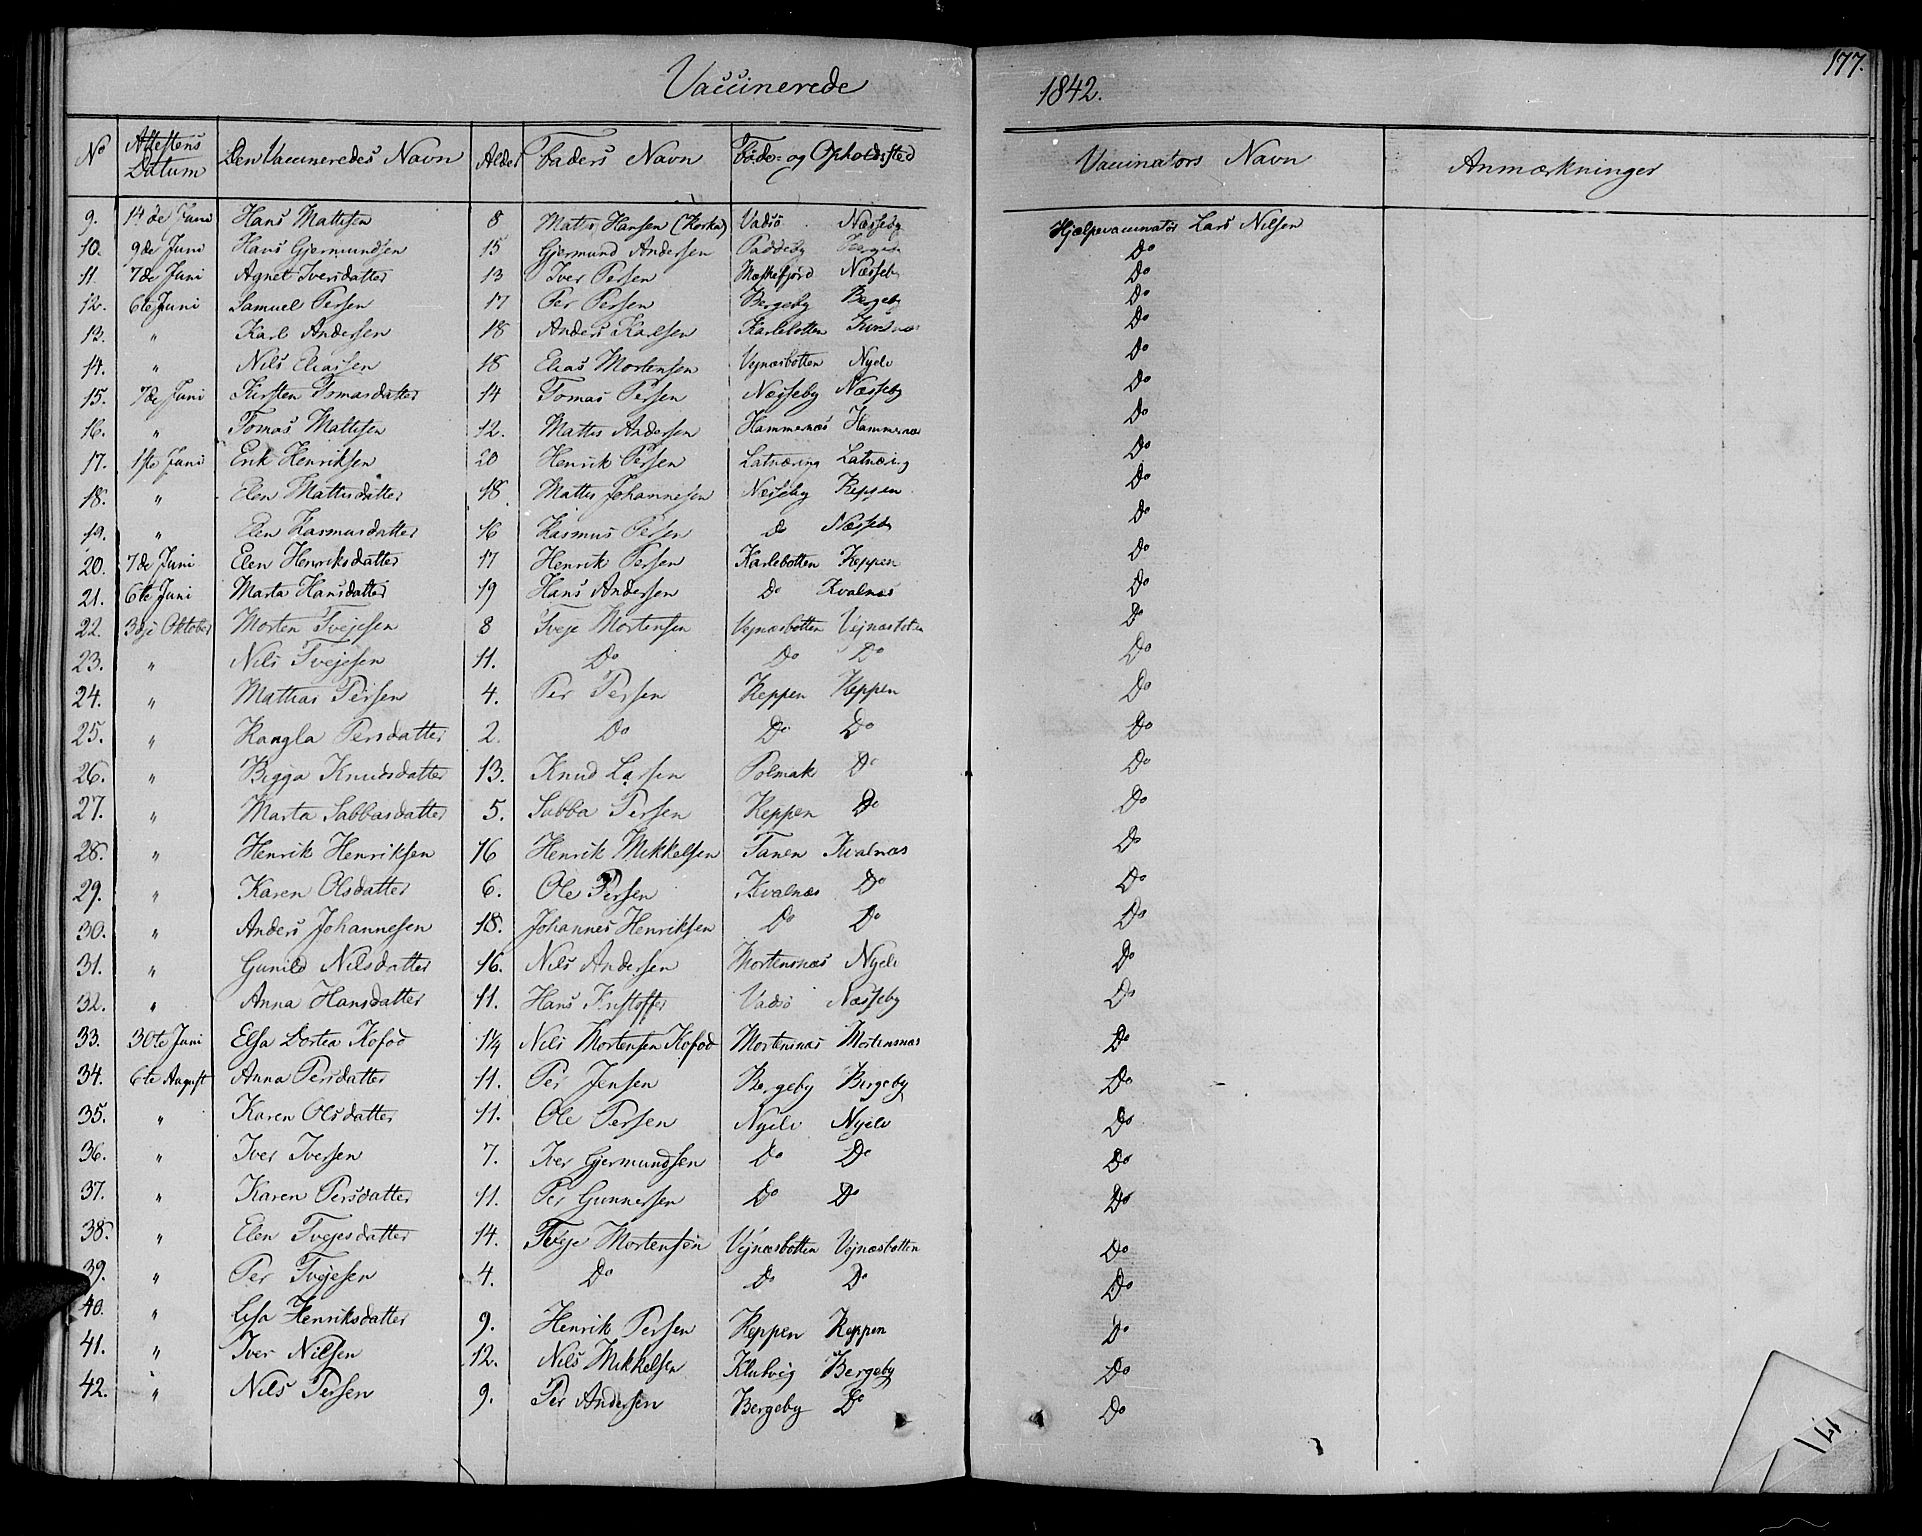 Vaccinerede 1842. 177.
No Attestens Datum Den Vaccineredes Navn Alder Faders Navn Føde- og Opholdssted Vaccinators Navn Anmærkninger
9. 14de Juni Hans Mattisen 8 Mattis Hansen (Korka) Vadsö Næsseby Hjælpevaccinatör Lars Nilsen
10. 9de Juni Hans Gjermundsen 15 Gjermund Andersen Paddeby Do
11. 7de Juni Agnet Iversdatter 13 Iver Persen Meskefjord Næsseby Do
12. 6te Juni Samuel Persen 17 Per Persen Bergeby Bergeby Do
13. " Karl Andersen 18 Anders Karlsen Karlebotten Kvalnæs Do
14. " Nils Eliassen 18 Elias Mortensen Vejnæsbotten Nyelv Do
15. 7de Juni Kirsten Tomasdatter 14 Tomas Persen Næsseby Næsseby Do
16. " Tomas Mattisen 12. Mattis Andersen Hammernæs Hammernæs Do
17. 1ste Juni Erik Henriksen 20 Henrik Persen Latnæring Latnæring Do
18. " Elen Mattisdatter 18. Mattis Johannesen Næsseby Keppen Do
19. " Elen Rasmusdatter 16 Rasmus Persen do Næsseby Do
20. 7de Juni Elen Henriksdatter 17 Henrik Persen Karlebotten Keppen Do
21. 6te Juni Marta Hansdatter 19 Hans Andersen Do Kvalnæs Do
22. 3die Oktober Morten Tvejesen 8 Tveje Mortensen Vejnæsbotten Vejnæsbotten Do
23. " Nils Tvejesen 11. Do Do Do Do
24. " Mathias Persen 4. Per Persen Keppen Keppen Do
25. " Rangla Persdatter 2. Do Do Do Do
26. " Bigga Knudsdatter 13. Knud Larsen Polmak Do Do
27. " Marta Sabbasdatter 5. Sabba Persen Keppen Do Do
28. " Henrik Henriksen 16 Henrik Mikkelsen Tanen Kvalnæs Do
29. " Karen Olsdatter 6. Ole Persen Kvalnæs Do Do
30. " Anders Johannesen 18. Johannes Henriksen Do Do Do
31. " Gunild Nilsdatter 16. Nils Andersen Mortensnæs Nyelv Do
32. " Anna Hansdatter 11. Hans Kristoffer Vadsö Næsseby Do
33. 30te Juni Elsa Dortea Kofod 1¼ Nils Mortensen Kofod Mortensnæs Mortensnæs Do
34. 6te August Anna Persdatter 11. Per Jensen Bergeby Bergeby Do
35. " Karen Olsdatter 11. Ole Persen Nyelv Nyelv Do
36. " Iver Iversen 7. Iver Gjermundsen Do Do Do
37. " Karen Persdatter 11. Per Gunnersen Do Do Do
38. " Elen Tvejesdatter 14. Tveje Mortensen Vejnæsbotten Vejnæsbotten Do
39. " Per Tvejesen 4. Do Do Do Do
40. " Elsa Henriksdatter 9. Henrik Persen Keppen Keppen Do
41. " Iver Nilsen 12. Nils Mikkelsen Klubvig Bergeby Do
42. " Nils Persen 9. Per Andersen Bergeby Do Do